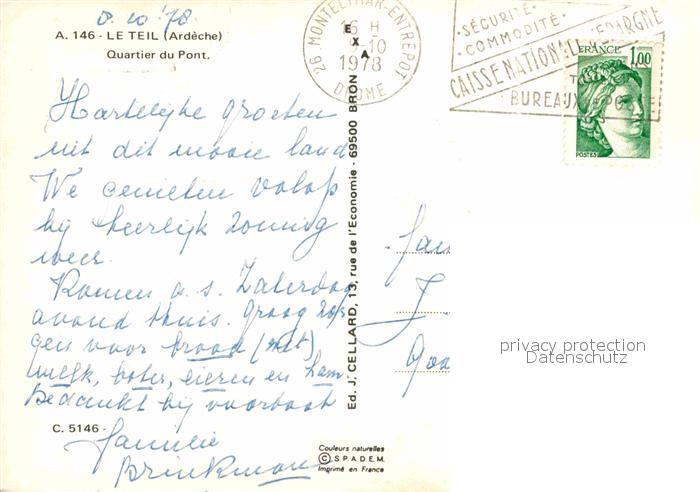 8.10'78
A. 146 - LE TEIL (Ardèche)
Quartier du Pont.
Hartelijke groeten
uit dit mooie land
We genieten volop
bij heerlijk zonnig
weer.
Komen a.s. Zaterdag
avond thuis. Graag zor-
gen voor brood (met),
melk, boter, eieren en ham
Bedankt bij voorbaat
familie
Brinkman
C. 5146 -
Couleurs naturelles
© S.P.A.D.E.M.
Imprimé en France
Ed. J. CELLARD, 13, rue de l'Economie - 69500 BRON
EXA
26 MONTELIMAR-ENTREPOT
16 H
10
1978
DROME
SÉCURITÉ
COMMODITÉ
CAISSE NATIONALE EPARGNE
BUREAUX POSTE
FRANCE
1,00
POSTES
Fam
J
Goo
privacy protection
Datenschutz